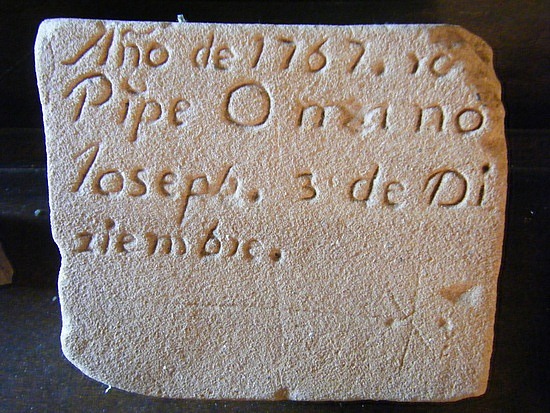 Año de 1767. yo
Pipe Omano
Ioseph. 3 de Di
ziembre.